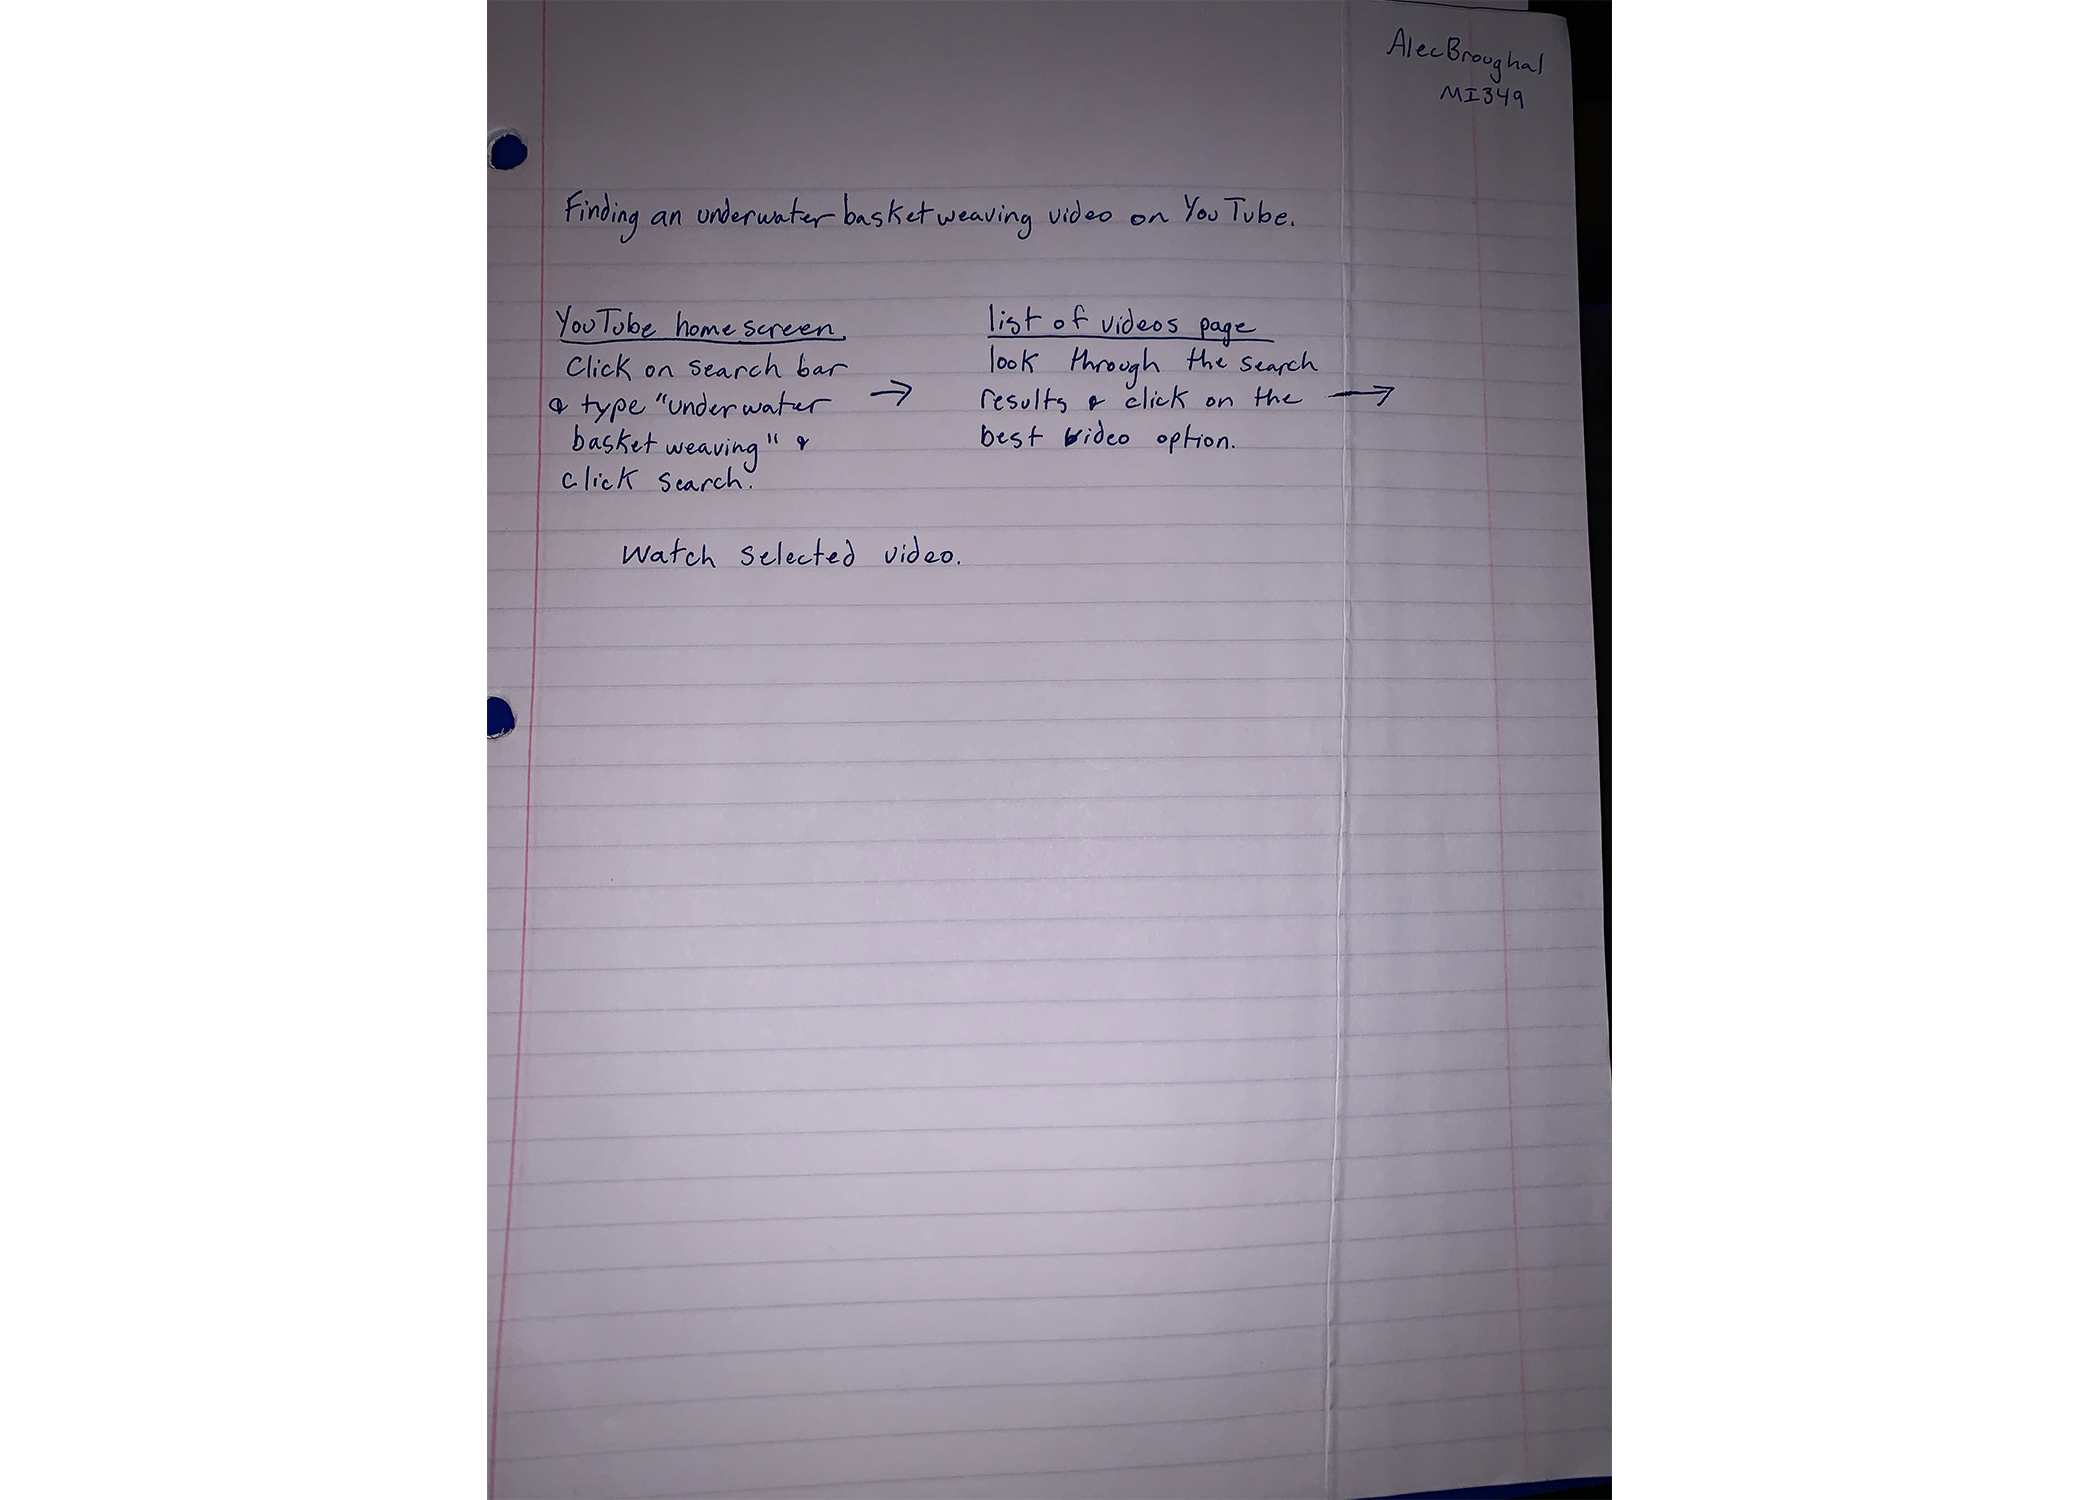 Alec Broughal
MI349
Finding an underwater basket weaving video on YouTube.
YouTube home screen.
Click on search bar
& type "underwater
basket weaving" &
click search.
→
list of videos page
look through the search
results & click on the
best video option.
→
Watch selected video.